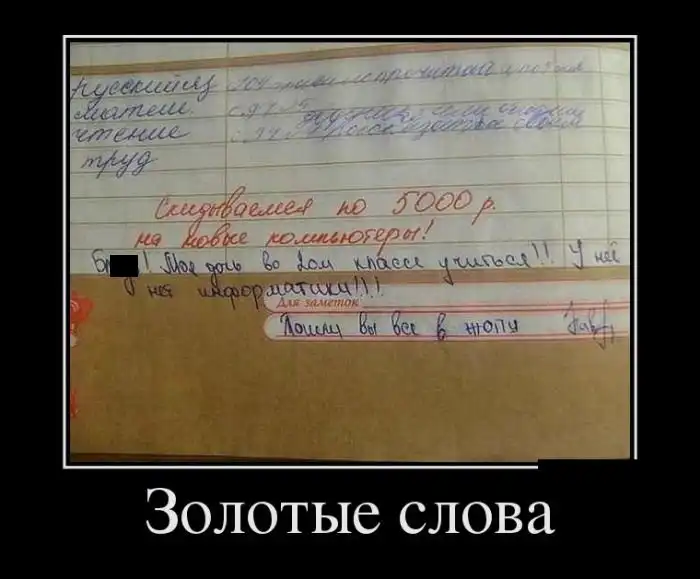 Русский яз
матем.
чтение
труд
Скидываемся по 5000 р.
на новые компьютеры!
Бл! Моя дочь во 2ом классе учиться!! У неё
нет информатики!!!
Для заметок
Пошли вы все в жопу
Золотые слова